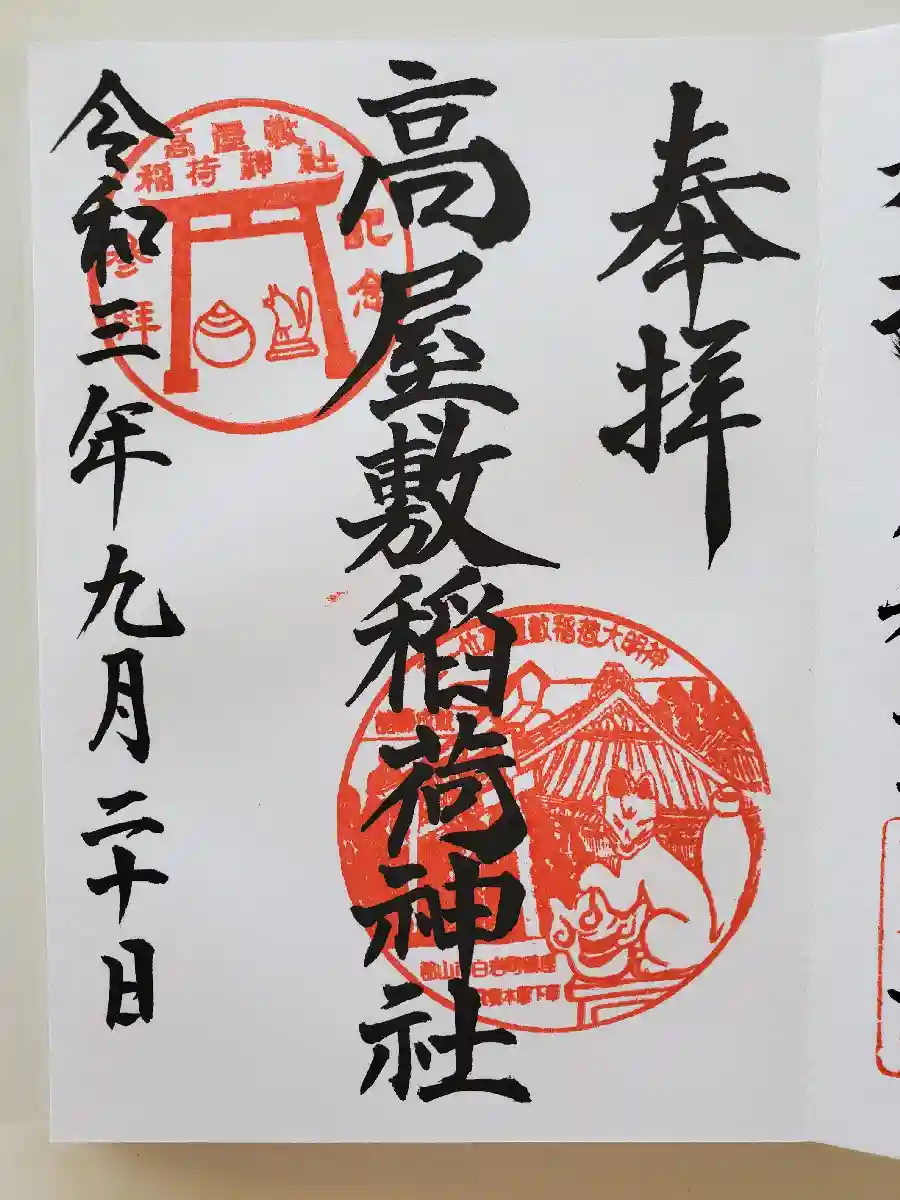 奉拝
高屋敷稲荷神社
令和三年九月二十日
高屋敷
稲荷神社
参拝
記念
屋敷稲荷大明神